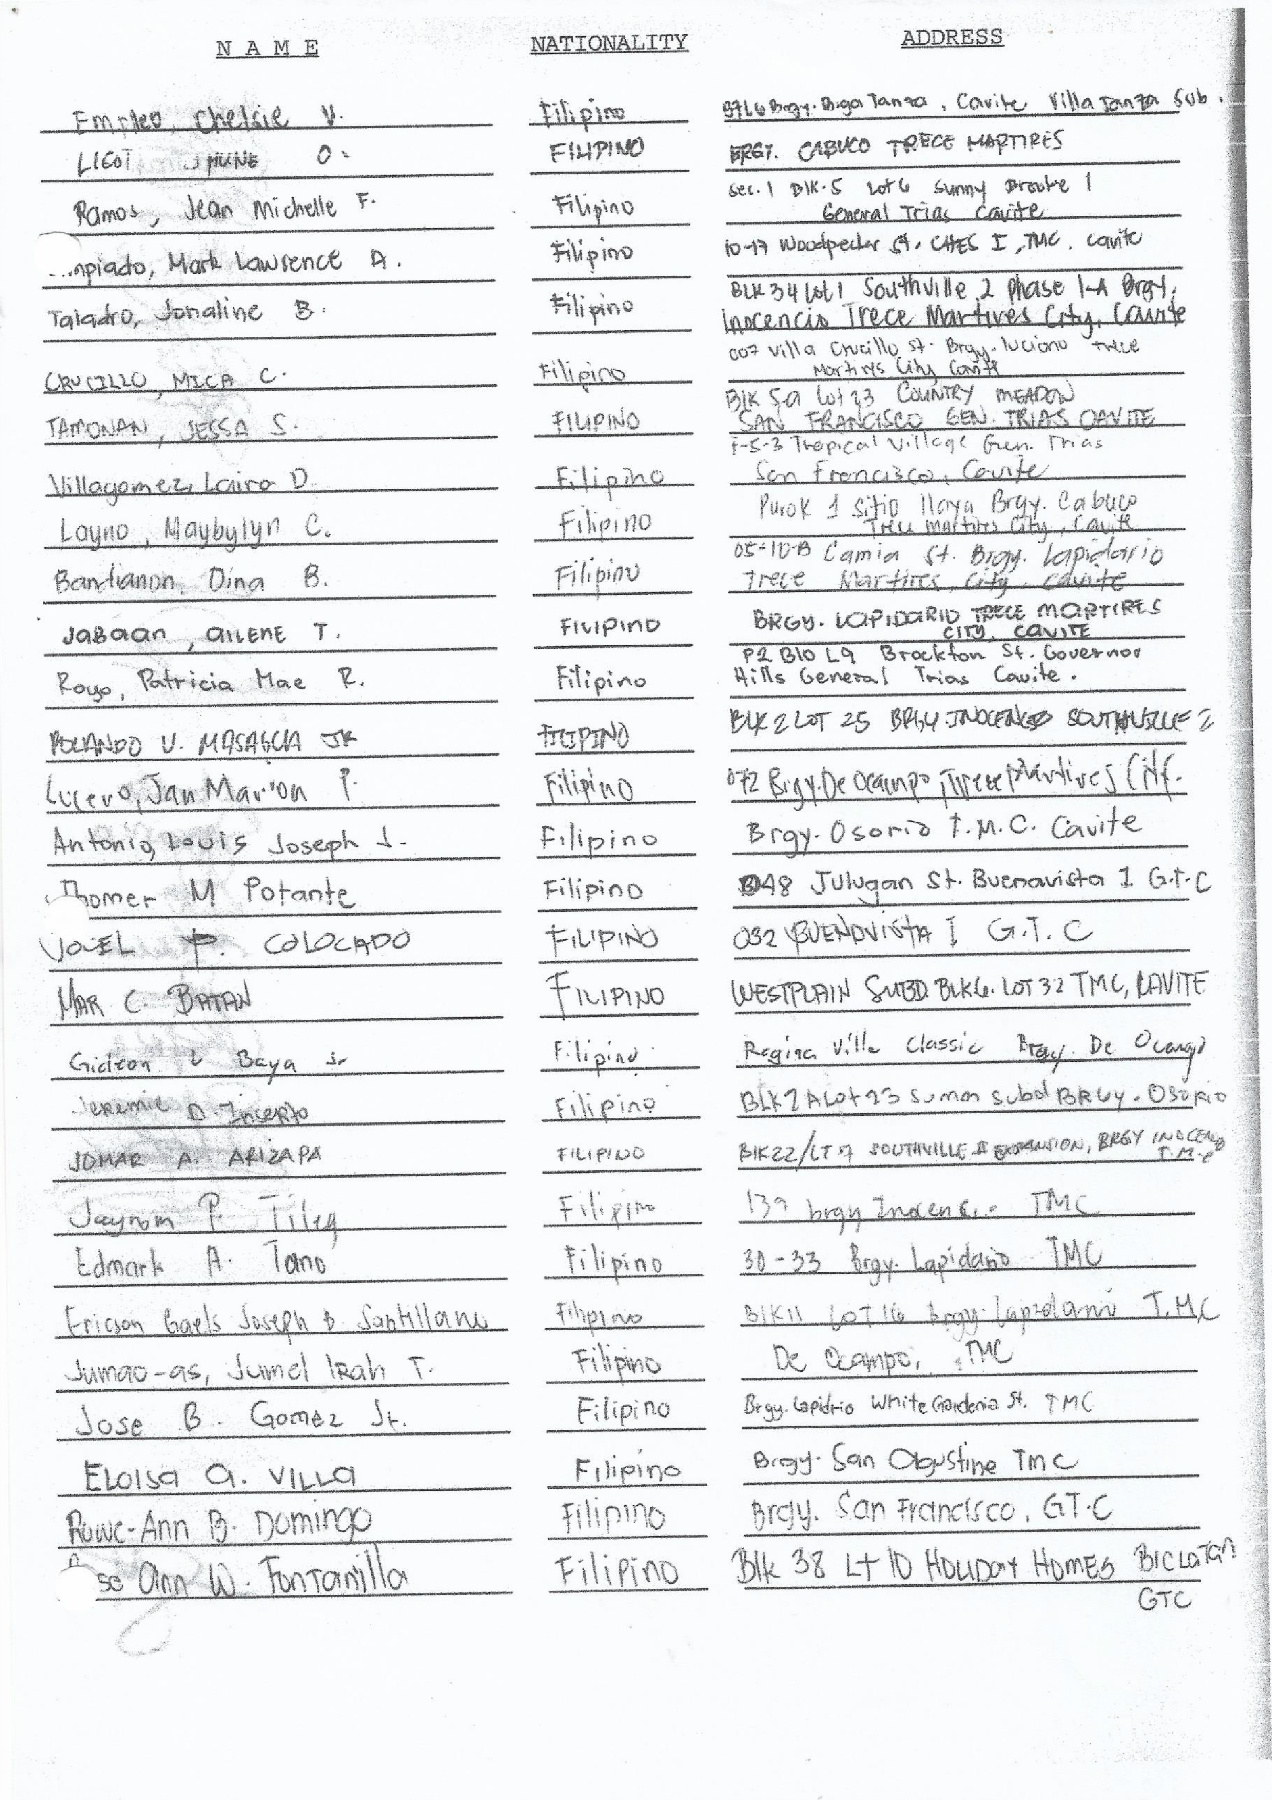 N A M E NATIONALITY ADDRESS
Empleo, Chelsie V. Filipino Brgy. Biga Tanza, Cavite Villa Tanza Sub.
LIGOT JHUNE O. FILIPINO BRGY. CABUCO TRECE MARTIRES
Ramos, Jean Michelle F. Filipino Sec. 1 Blk. 5 Lot 6 Sunny Brooke 1
General Trias Cavite
Mark Lawrence A. Filipino 10-17 Woodpecker St. CHES I, TMC. Cavite
Taladro, Jonaline B. Filipino BLK 34 Lot 1 Southville 2 Phase 1-A Brgy.
Inocencio Trece Martires City, Cavite
CRUCILLO, MICA C. Filipino 007 Villa Crucillo St. Brgy. Luciano Trece
Martirys City Cavite
TAMONAN, JESSA S. FILIPINO Blk 5a Lot 23 COUNTRY MEADOW
SAN FRANCISCO GEN. TRIAS CAVITE
Villagomez, Laira D. Filipino F-5-3 Tropical Village Gen. Trias
San Francisco, Cavite
Layno, Maybylyn C. Filipino Purok 1 Sitio Ilaya Brgy. Cabuco
Trece Martires City, Cavite
Bandianon, Dina B. Filipino 05-10-B Camia St. Brgy. Lapidario
Trece Martires City, Cavite
JABAAN, AILENE T. FILIPINO BRGY. LAPIDARIO TRECE MARTIRES
CITY, CAVITE
Royo, Patricia Mae R. Filipino P2 B10 L9 Brockton St. Governor
Hills General Trias Cavite.
ROLANDO V. MASAGCA JR FILIPINO BLK 2 LOT 25 BRGY. INOCENCIO SOUTHVILLE 2
Lucero, Jan Marion P. Filipino 072 Brgy. De Ocampo, Trece Martires City.
Antonio, Louis Joseph J. Filipino Brgy. Osorio T.M.C. Cavite
M Potante Filipino B48 Julugan St. Buenavista 1 G.T.C
JOEL P. COLOCADO FILIPINO 032 BUENAVISTA I G.T.C
MAR C. BATAN FILIPINO WESTPLAIN SUBD. BLK6. LOT 32 TMC, CAVITE
Gideon L Baya Jr Filipino Regina Ville Classic Brgy. De Ocampo
Jeremie D. Incepto Filipino BLK 2A Lot 23 Summer Subd BRGY. OSORIO
JOMAR A. ARIZAPA FILIPINO BlK22/LT 7 SOUTHVILLE II EXPANSION, BRGY INOCENCIO
T.M.C
Jayrom P. Tileg Filipino 139 brgy Inocencio TMC
Edmark A. Tano Filipino 30-33 Brgy. Lapidario TMC
Ericson Gaels Joseph D Santillana Filipino BlK11 LOT 16 Brgy. T.M.C
Jumao-as, Jumel Irah T. Filipino De Ocampo, TMC
Jose B. Gomez Jr. Filipino Brgy. Lapidrio White Gardenia St. TMC
ELOISA A. VILLA Filipino Brgy. San Agustine TMC
Ruwe-Ann B. Domingo Filipino Brgy. San Francisco, GT.C
Ann W. Fontanilla Filipino Blk 38 Lt 10 HOLIDAY HOMES BICLATAN
GTC